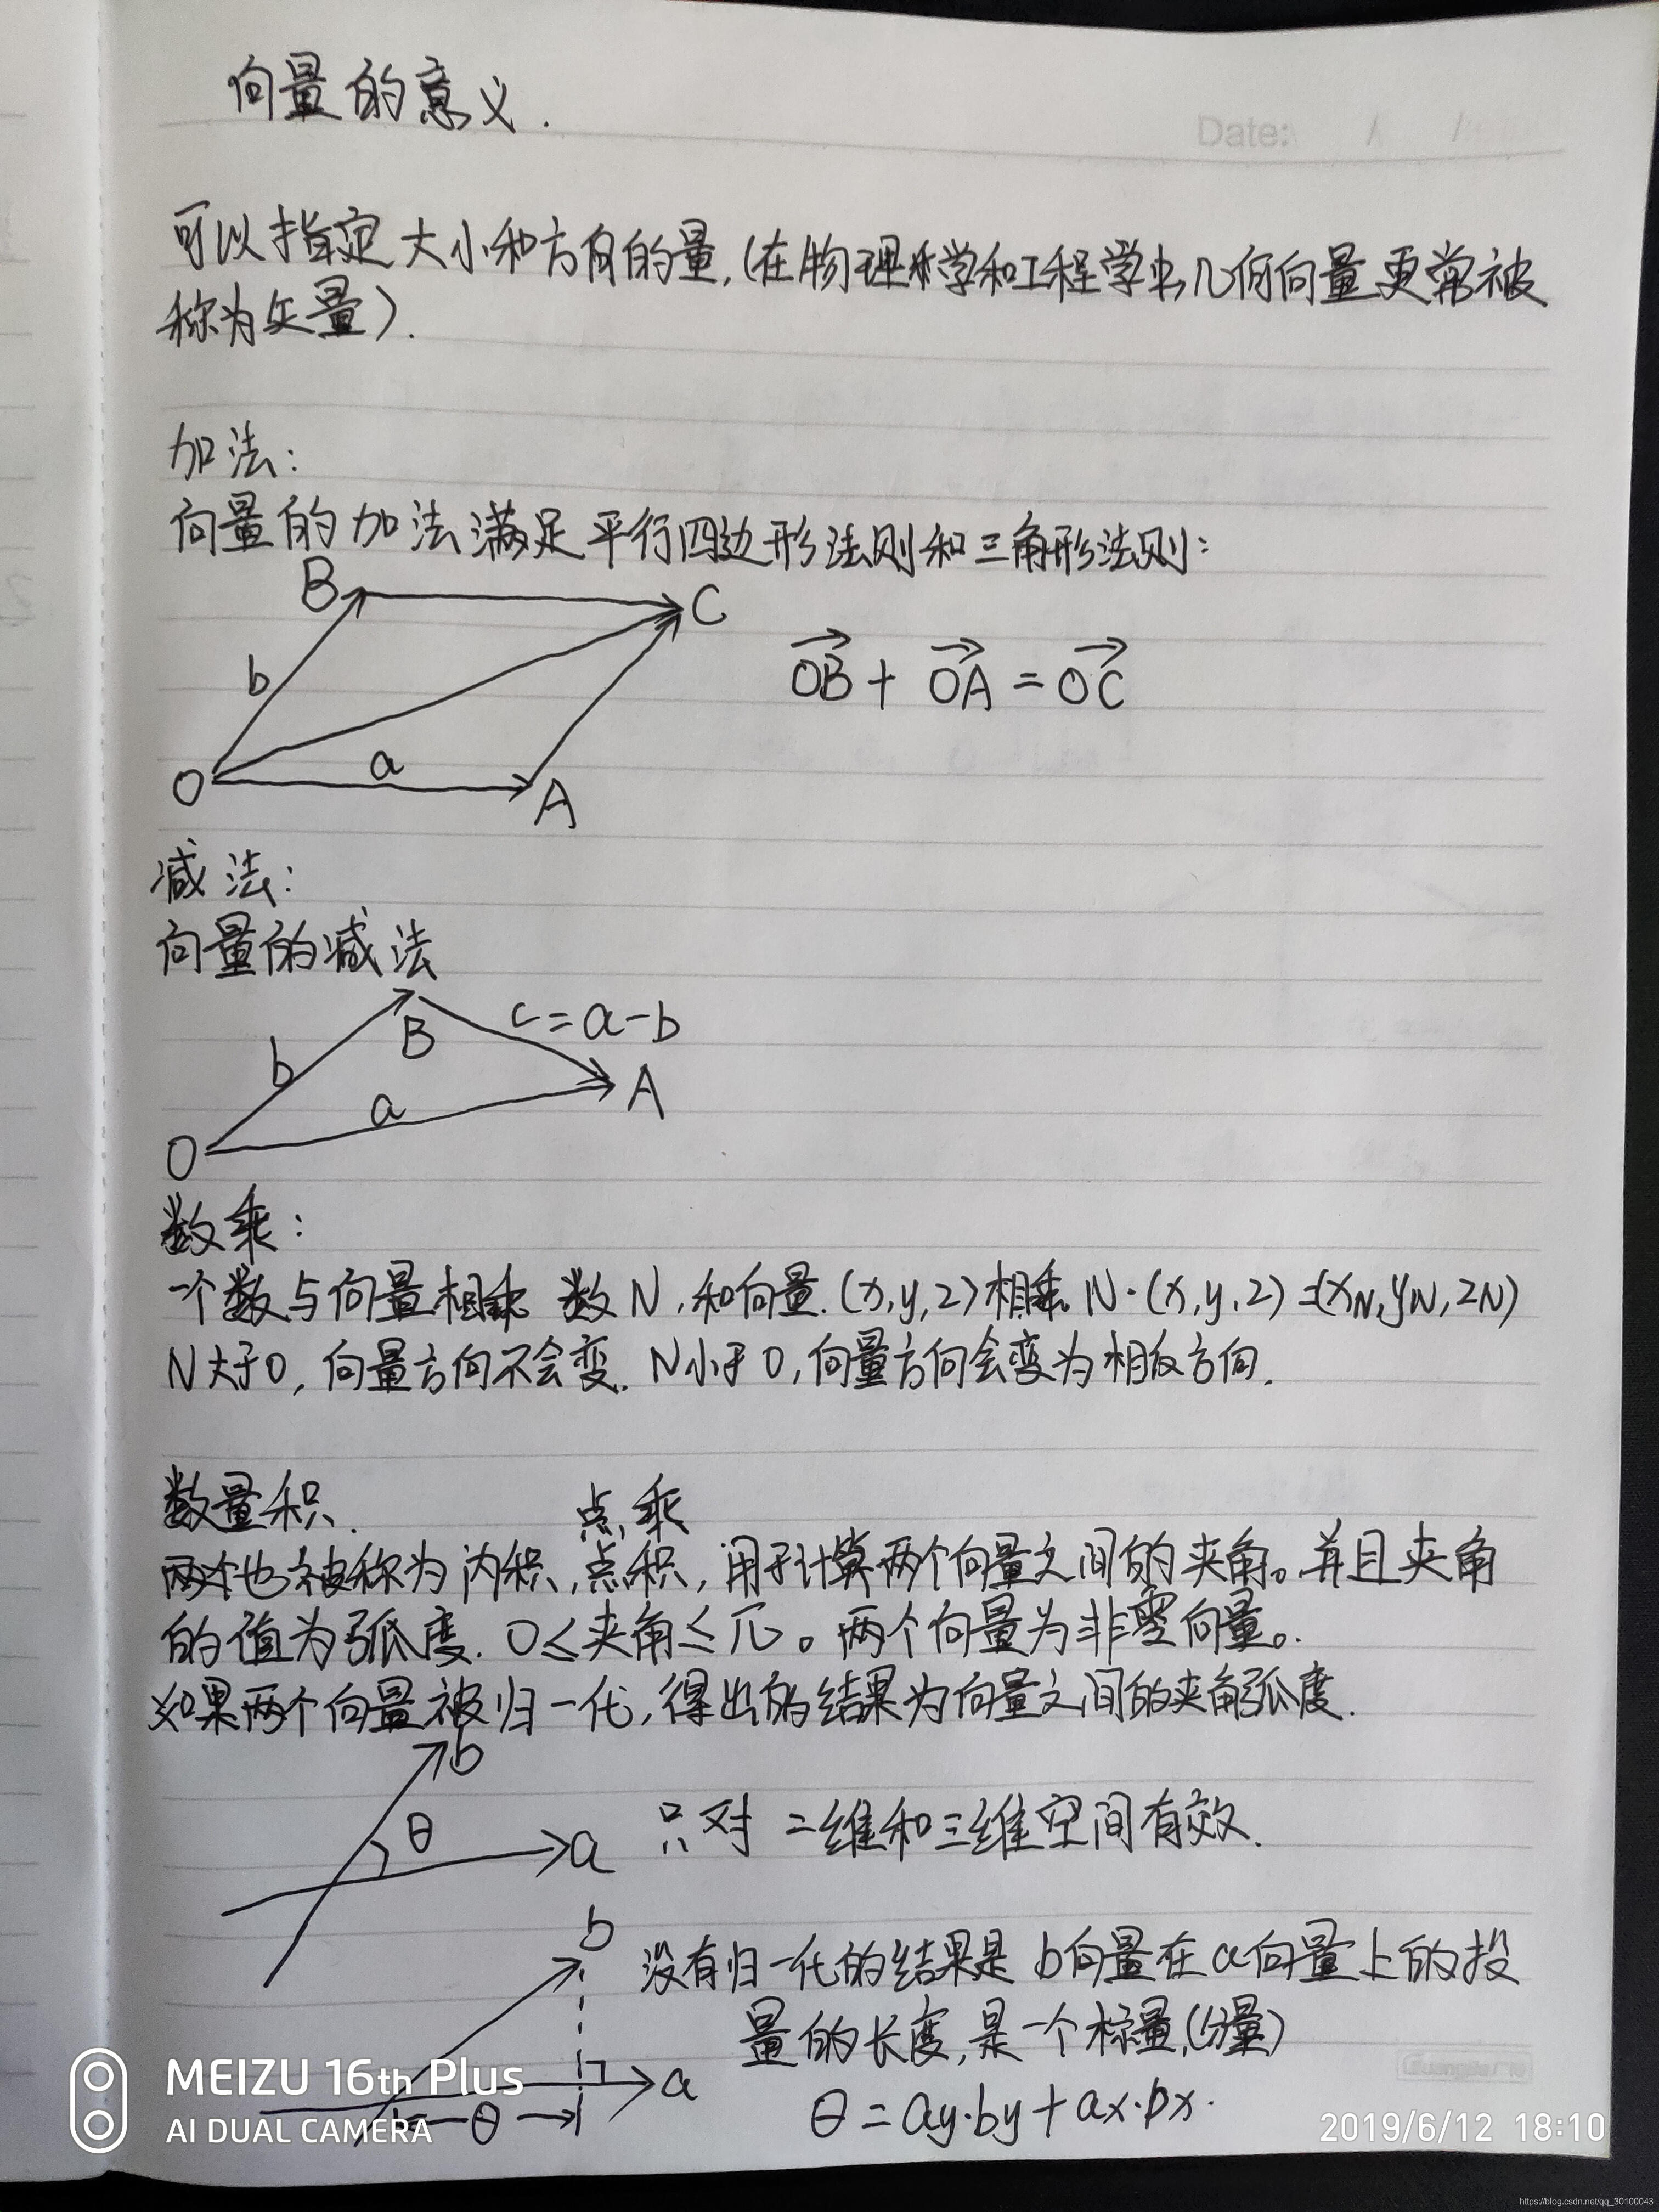 向量的意义.
Date:
可以指定大小和方向的量,(在物理学和工程学中,几何向量更常被
称为矢量).
加法:
向量的加法满足平行四边形法则和三角形法则:
B
C
b
OB + OA = OC
a
O
A
减法:
向量的减法
c=a-b
B
b
A
a
O
数乘:
一个数与向量相乘 数N,和向量.(x,y,z)相乘 N·(x,y,z)=(xN,yN,zN)
N大于0,向量方向不会变. N小于0,向量方向会变为相反方向.
数量积.
点乘
也被称为内积,点积,用于计算两个向量之间的夹角。并且夹角
的值为弧度. 0≤夹角≤π。两个向量为非零向量。.
如果两个向量被归一化,得出的结果为向量之间的夹角弧度.
b
θ
a
只对二维和三维空间有效.
b
没有归一化的结果是b向量在a向量上的投
量的长度,是一个标量,(分量)
a
θ
θ=ay·by+ax·bx.
MEIZU 16th Plus
AI DUAL CAMERA
2019/6/12 18:10
https://blog.csdn.net/qq_30100043